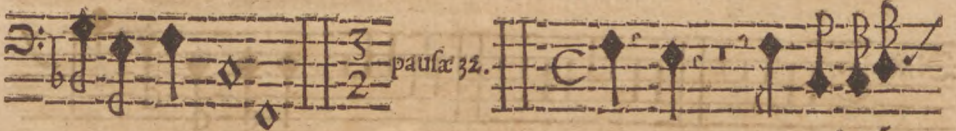 3
2
pauſæ 32.
C